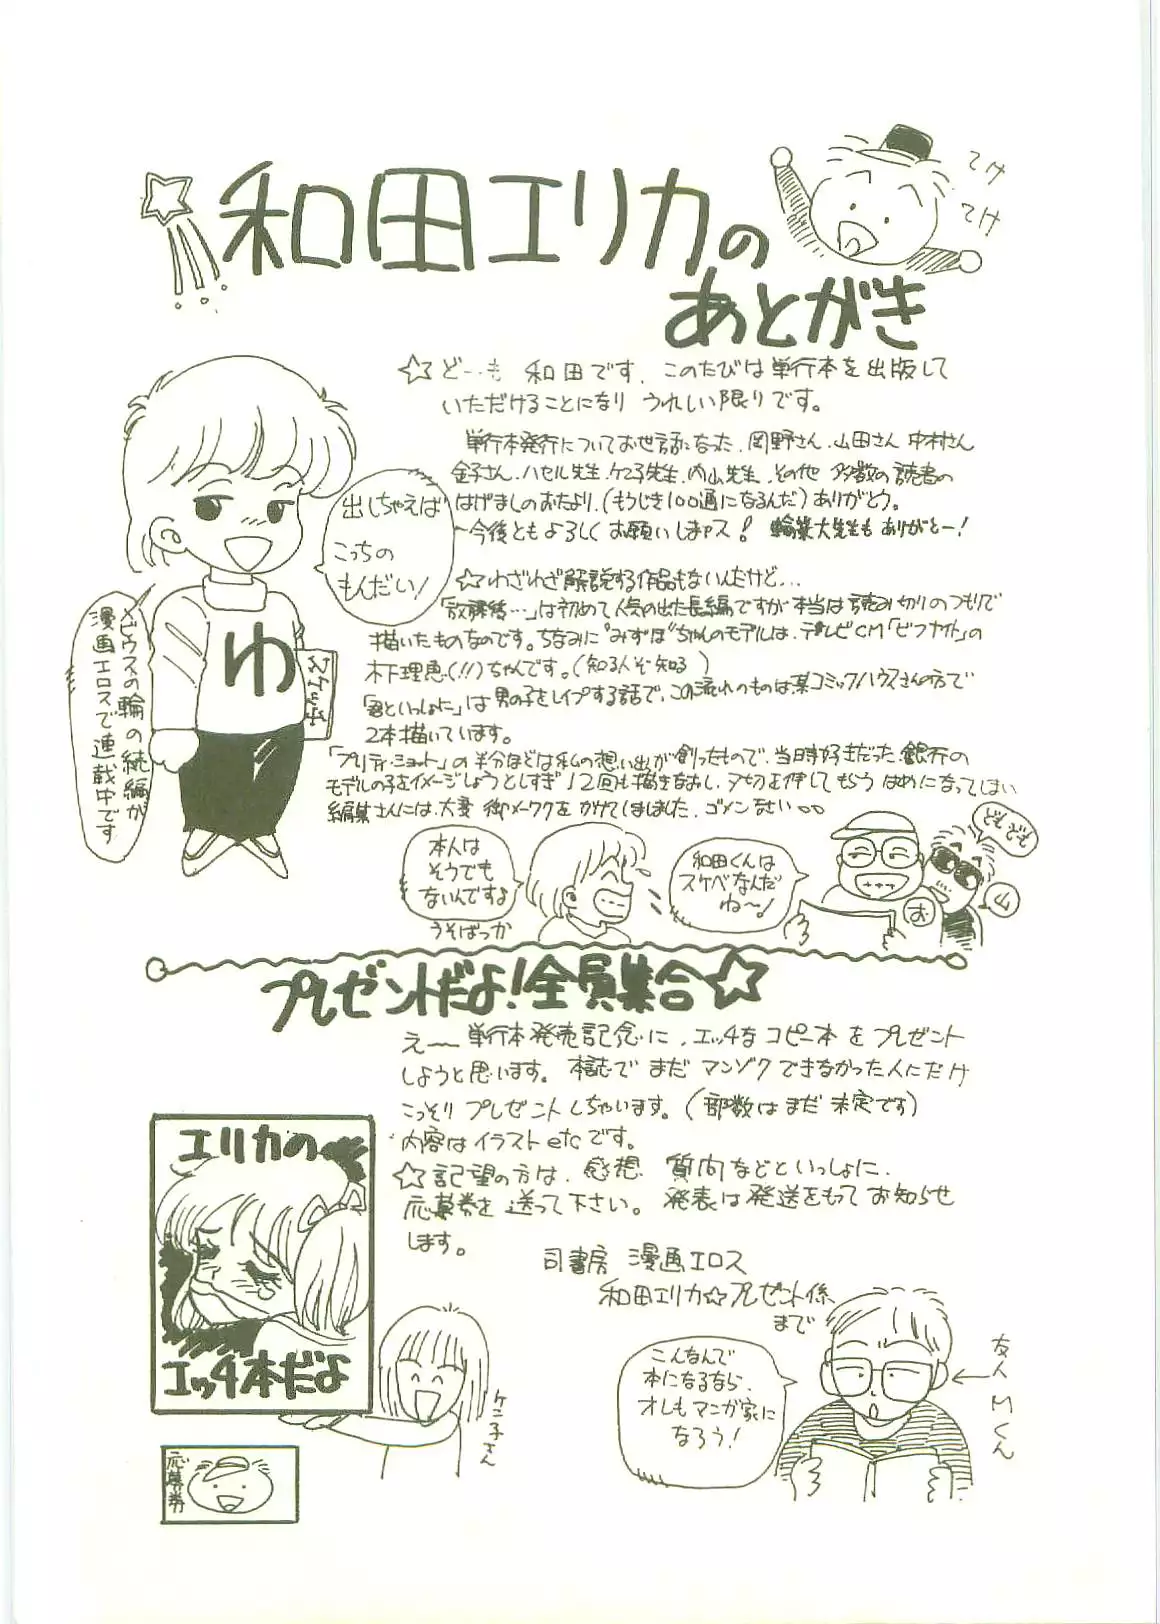 和田エリカの
あとがき
てけ
てけ
☆ど…も 和田です、このたびは単行本を出版して
いただけることになり うれしい限りです。
単行本発行についてお世話になった、岡野さん、山田さん 中村さん
金子さん、ハセル先生、ケン子先生、内山先生、その他 多数の読者の
はげましのおたより、(もうじき100通になるんだ)ありがとう。
～今後ともよろしく お願いしまャス! 輪業大先生も ありがとー!
出しちゃえば
こっちの
もんだい!
ゆ
スケッチ
メビウスの輪の続編が
漫画エロスで連載中です
☆わざわざ解説する作品もないんだけど…
「放課後…」は初めて人気の出た長編ですが本当は読み切りのつもりで
描いたものなのです。ちなみに"みずほ"ちゃんのモデルは、テレビCM「ビフナイト」の
木下理恵(!!)ちゃんです。(知る人ぞ知る)
「君といっしょに」は男の子をレイプする話で、この流れのものは某コミックハウスさんの方で
2本描いています。
「プリティ・ショット」の半分ほどは私の想い出が創ったもので、当時好きだった銀行の
モデルの子をイメージしようとしすぎ12回も描きなおし、〆切を押してもうはめになってしまい
編集さんには、大変 御メーワクをかけてしまいました、ゴメンなさい
本人は
そうでも
ないんですよ
うそばっか
和田くんは
スケベなんだ
ね～!
お
どもども
山
プレゼントだよ!全員集合☆
えー 単行本発売記念に、エッチな コピー本 を プレゼント
しようと思います。本誌で まだ マンゾク できなかった人にだけ
こっそり プレゼントしちゃいます。(部数は まだ 未定です)
内容はイラストetcです。
☆記望の方は、感想 質向などといっしょに、
応募券を 送って下さい。発表は発送をもって お知らせ
します。
司書房 漫画エロス
和田エリカ☆プレゼント係
まで
エリカの
エッチ本だよ
ケン子さん
応募券
こんなんで
本になるなら、
オレもマンガ家に
なろう!
友人Mくん